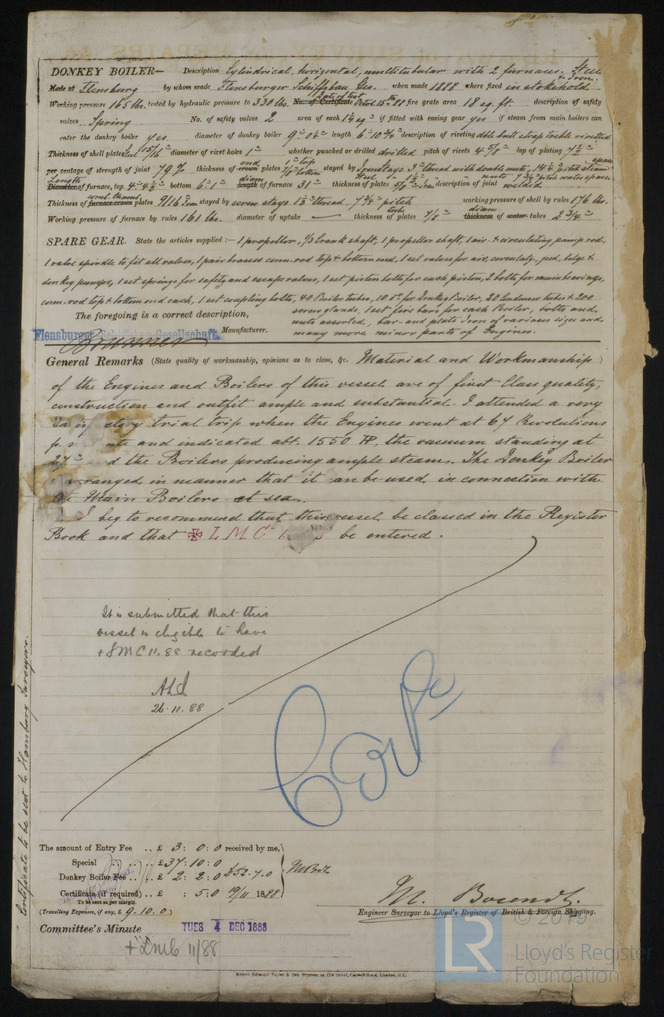 DONKEY BOILER— Description Cylindrical, horizontal, multitubular with 2 furnaces. Steel & Iron
Made at Flensburg by whom made Flensburger Schiffsbau Ges. when made 1888 where fixed in stokehold
Working pressure 165 lbs. tested by hydraulic pressure to 330 lbs. No. of Certificate Date of test 88 fire grate area 18 sq. ft. description of safety
valves Spring No. of safety valves 2 area of each if fitted with easing gear yes if steam from main boilers can
enter the donkey boiler yes diameter of donkey boiler length description of riveting dble butt strap treble rivetted
Thickness of shell plates 15/16" diameter of rivet holes 1" whether punched or drilled drilled pitch of rivets 4 5/8" lap of plating
per centage of strength of joint 79% thickness of crown end plates 1" top 7/8" bottom stayed by
Diameter Length of furnace, top bottom 6' 1" length diam of furnace 31" thickness of plates description of joint welded
Thickness of furnace crown comb. chamb. plates 9/16 stayed by screw stays thread, pitch working pressure of shell by rules 176 lbs
Working pressure of furnace by rules 161 lbs. diameter of uptake — thickness of plates tube 7/8" thickness diam of water tubes 2 3/4"
SPARE GEAR. State the articles supplied:— 1 propeller, 1/3 Crank shaft, 1 propeller shaft, 1 air & circulating pump rod,
1 valve spindle to fit all valves, 1 pair brasses conn. rod top & bottom end, 1 set valves for air, circulatg, feed, bilge &
donkey pumps, 1 set springs for safety and escape valves, 1 set piston bolts for each piston, 2 bolts for main bearings,
conn. rod top & bottom end each, 1 set coupling bolts, 40 Boiler tubes, 10 for Donkey Boiler, 20 condenser tubes & 200
The foregoing is a correct description, screw glands, 1 set fire bars for each Boiler, bolts and
nuts assorted, bar- and plate iron of various sizes and
Flensburger Schiffsbau Gesellschaft, Manufacturer. many more minor parts of Engine.
General Remarks (State quality of workmanship, opinions as to class, &c. Material and Workmanship
of the Engines and Boilers of this vessel are of first Class quality,
construction and outfit ample and substantial. I attended a very
trial trip when the Engines went at 67 Revolutions
and indicated abt. 1550 HP, the vacuum standing at
27" the Boilers producing ample steam. The Donkey Boiler
arranged in manner that it can be used in connection with
the Main Boilers at sea.
I beg to recommend that this vessel be classed in the Register
Book and that ✠ L M C be entered.
It is submitted that this
vessel is eligible to have
+ LMC 11.88 recorded
26.11.88
Certificate to be sent to Hamburg Surveyors.
The amount of Entry Fee .. £ 3 : 0 : 0 received by me,
Special .. .. £ 37 : 10 : 0
Donkey Boiler Fee .. £ 2 : 2 : 0 £52.7.0
Certificate (if required) .. £ : 5 : 0 19/11 1888
To be sent as per margin.
(Travelling Expenses, if any, £ 9.10.0)
Engineer Surveyor to Lloyd's Register of British & Foreign Shipping.
Committee's Minute TUES 4 DEC 1888
+ LMC 11/88
© 2019
LR
Lloyd's Register
Foundation